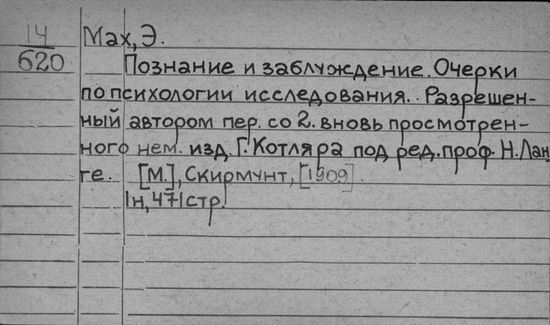 14
620
Мах, Э.
Познание и заблуждение. Очерки
по психологии исследования. Разрешен-
ный автором пер. со 2. вновь просмотрен-
ного нем. изд. Г. Котляра под ред. проф. Н. Лан
ге. [М.], Скирмунт, [1909].
1н, 471 стр.